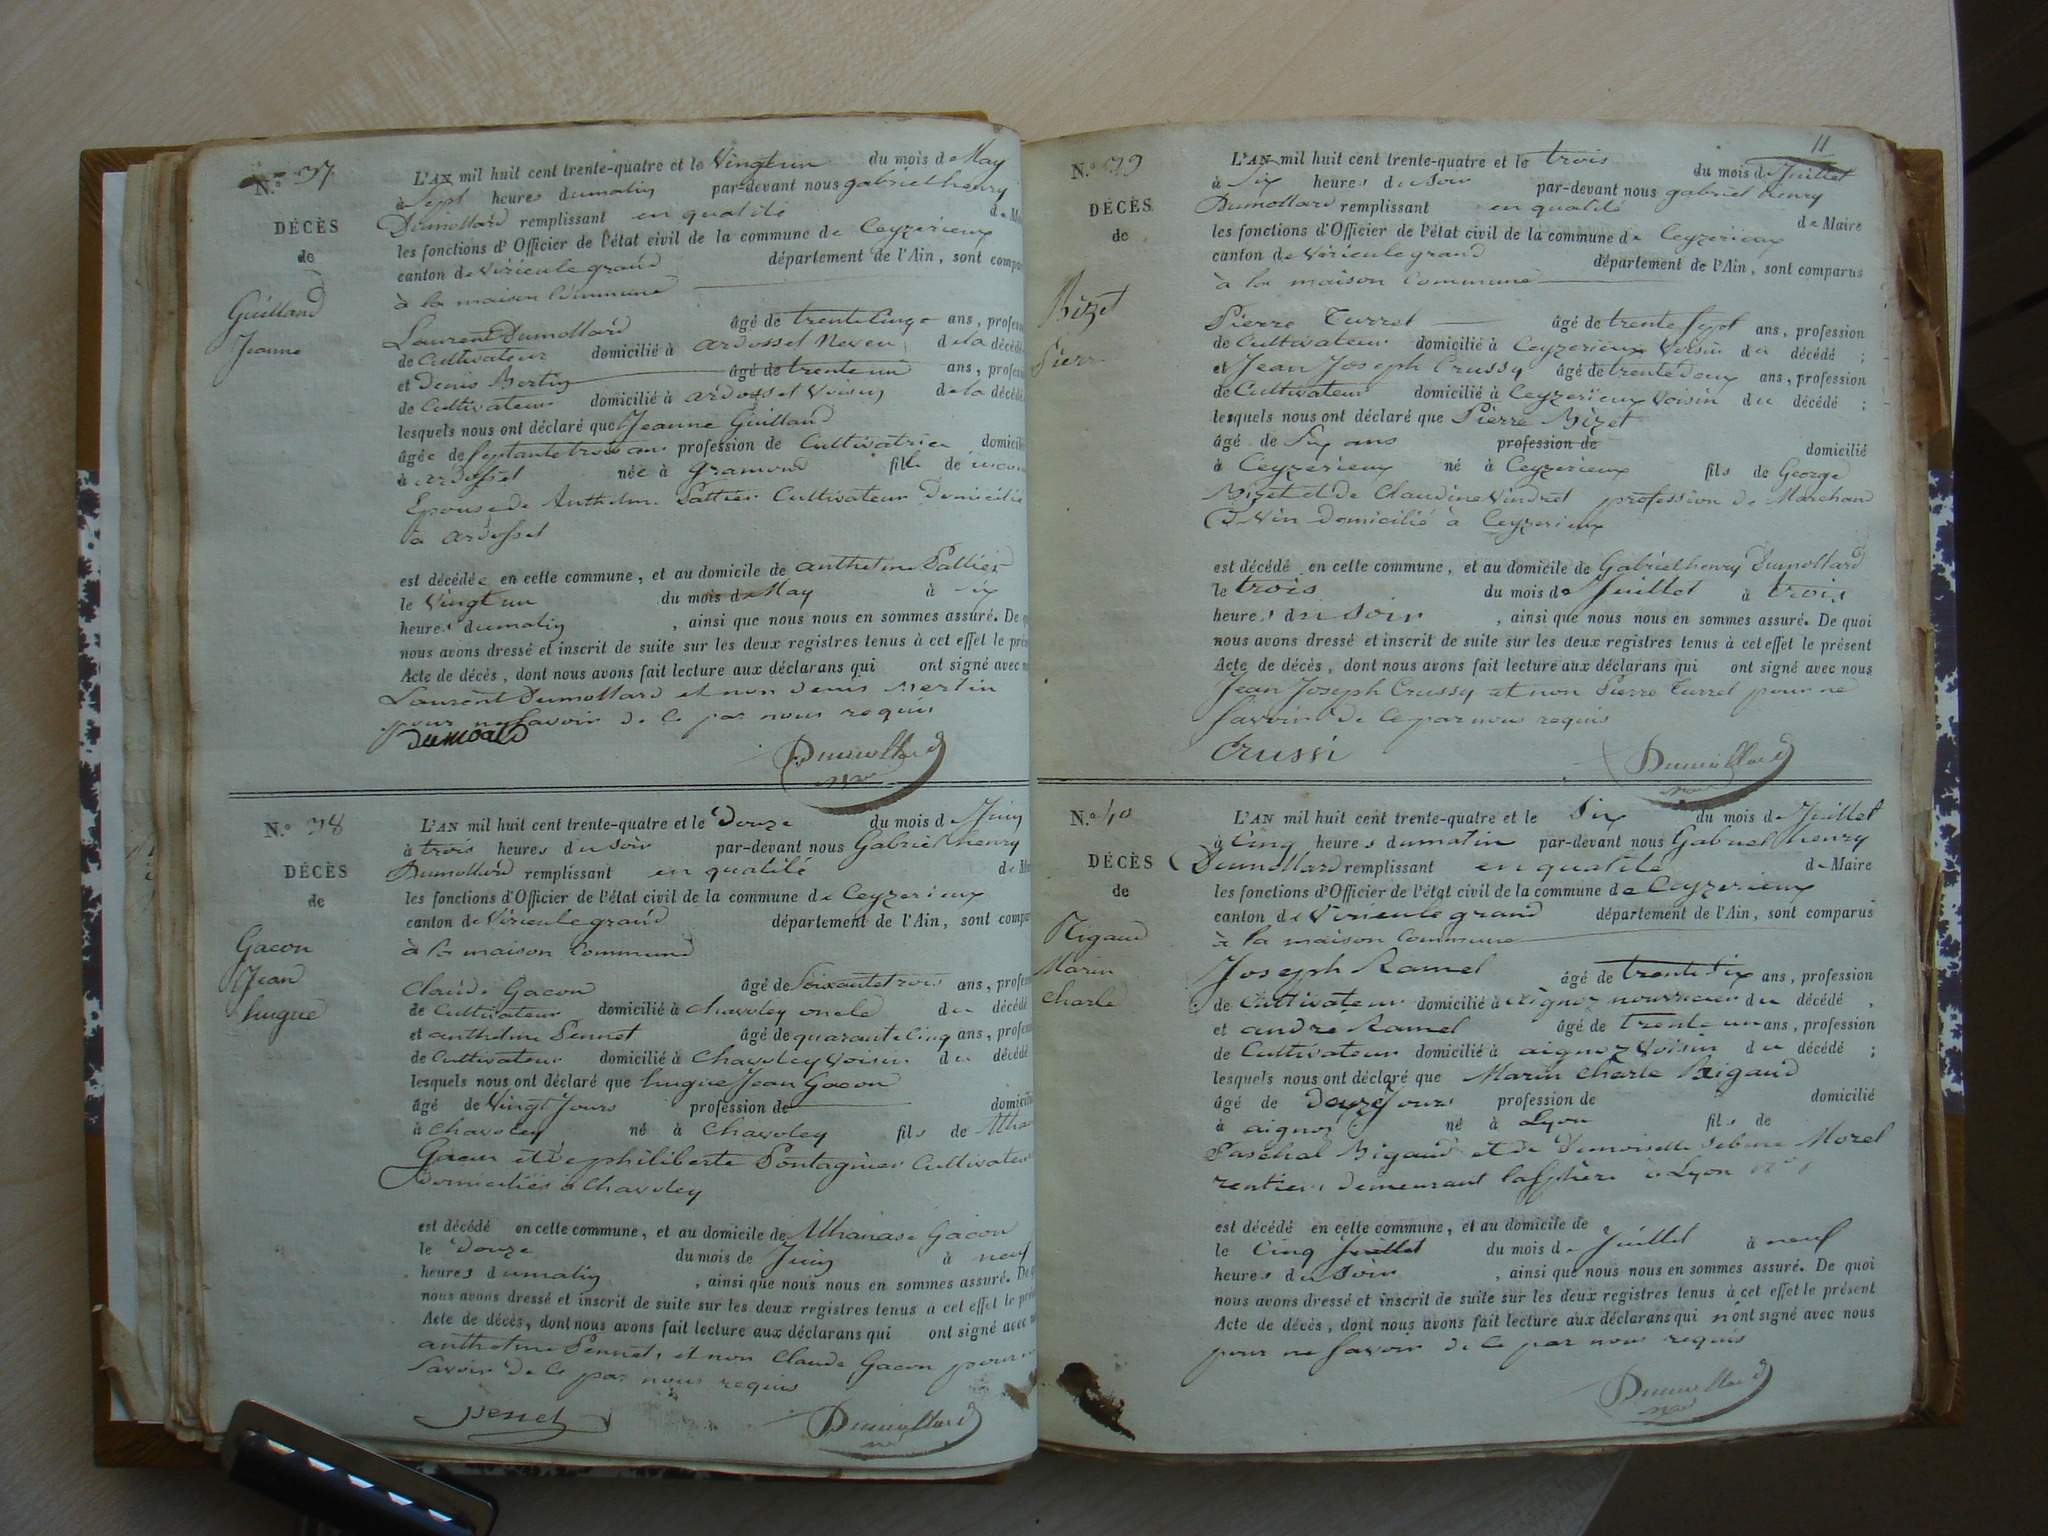 N.° 37
DÉCÈS
de
Guilland
Jeanne
L'AN mil huit cent trente-quatre et le Vingt un du mois de May
à Sept heures du matin par-devant nous gabriel henry
Dumollard remplissant en qualité de Mai
les fonctions d'Officier de l'état civil de la commune de Ceyzerieux
canton de Virieulegrand département de l'Ain, sont compar
à la maison Commune
Laurent Dumollard âgé de trente Cinq ans, profess
de Cultivateur domicilié à ardosset Neveu de la décédé
et Denis Bertin âgé de trente un ans, profess
de Cultivateur domicilié à ardosset Voisin de la décédé
lesquels nous ont déclaré que Jeanne Guilland
âgée de septante trois ans profession de Cultivatrice domicili
à ardosset née à Gramond fille de
Epouse de Anthelme Pattier Cultivateur Domicilié
à ardosset
est décédée en cette commune, et au domicile de anthelme Pattier
le Vingt un du mois de May à six
heures du matin, ainsi que nous nous en sommes assuré. De q
nous avons dressé et inscrit de suite sur les deux registres tenus à cet effet le prés
Acte de décès, dont nous avons fait lecture aux déclarans qui ont signé avec n
Laurent Dumollard et non Denis Bertin
pour ne savoir de Ce par nous requis
Dumollard
N.° 38
DÉCÈS
de
Gacon
Jean
hugue
L'AN mil huit cent trente-quatre et le Douze du mois de Juin
à trois heures du soir par-devant nous Gabriel henry
Dumollard remplissant en qualité de Mai
les fonctions d'Officier de l'état civil de la commune de Ceyzerieux
canton de Virieulegrand département de l'Ain, sont compar
à la maison Commune
Claude Gacon âgé de Soixante trois ans, profess
de Cultivateur domicilié à chavoley oncle du décédé
et anthelme Pennet âgé de quarante Cinq ans, profess
de Cultivateur domicilié à Chavoley Voisin du décédé
lesquels nous ont déclaré que hugue Jean Gacon
âgé de Vingt Jours profession de domicilié
à Chavoley né à Chavoley fils de Athan
Gacon et de philiberte Pontaginer Cultivateur
Domiciliés à Chavoley
est décédé en cette commune, et au domicile de Athanase Gacon
le Douze du mois de Juin à neuf
heures du matin, ainsi que nous nous en sommes assuré. De q
nous avons dressé et inscrit de suite sur les deux registres tenus à cet effet le prés
Acte de décès, dont nous avons fait lecture aux déclarans qui ont signé avec n
anthelme Pennet, et non Claude Gacon pour n
Savoir de Ce par nous requis
pennet
Dumollard
11
N.° 39
DÉCÈS
de
Bizet
Pierre
L'AN mil huit cent trente-quatre et le trois du mois de Juillet
à Six heures du soir par-devant nous gabriel henry
Dumollard remplissant en qualité de Maire
les fonctions d'Officier de l'état civil de la commune de Ceyzerieux
canton de Virieulegrand département de l'Ain, sont comparus
à la maison Commune
Pierre Turrel âgé de trente Sept ans, profession
de Cultivateur domicilié à Ceyzerieux Voisin du décédé ;
et Jean Joseph Crussy âgé de trente deux ans, profession
de Cultivateur domicilié à Ceyzerieux Voisin du décédé ;
lesquels nous ont déclaré que Pierre Bizet
âgé de Six ans profession de domicilié
à Ceyzerieux né à Ceyzerieux fils de George
Bizet et de Claudine Vindret profession de Marchand
de Vin Domicilié à Ceyzerieux
est décédé en cette commune, et au domicile de Gabriel henry Dumollard
le trois du mois de Juillet à trois
heures du Soir, ainsi que nous nous en sommes assuré. De quoi
nous avons dressé et inscrit de suite sur les deux registres tenus à cet effet le présent
Acte de décès, dont nous avons fait lecture aux déclarans qui ont signé avec nous
Jean Joseph Crussy et non Pierre Turrel pour ne
Savoir de Ce par nous requis
Crussi
Dumollard
N.° 40
DÉCÈS
de
Rigaud
Marin
Charle
L'AN mil huit cent trente-quatre et le Six du mois de Juillet
à Cinq heures du matin par-devant nous Gabriel henry
Dumollard remplissant en qualité de Maire
les fonctions d'Officier de l'état civil de la commune de Ceyzerieux
canton de Virieule grand département de l'Ain, sont comparus
à la maison Commune
Joseph Ramel âgé de trente six ans, profession
de Cultivateur domicilié à aignoz nourricier du décédé ,
et andré Ramel âgé de trente un ans, profession
de Cultivateur domicilié à aignoz Voisin du décédé ;
lesquels nous ont déclaré que Marin Charle Rigaud
âgé de Jours profession de domicilié
à aignoz né à Lyon fils de
Paschal Rigaud et de Demoiselle Morel
rentier, demeurant à Lyon
est décédé en cette commune, et au domicile de
le Cinq Juillet du mois de Juillet à neuf
heures du soir, ainsi que nous nous en sommes assuré. De quoi
nous avons dressé et inscrit de suite sur les deux registres tenus à cet effet le présent
Acte de décès, dont nous avons fait lecture aux déclarans qui n'ont signé avec nous
pour ne Savoir de Ce par nous requis
Dumollard